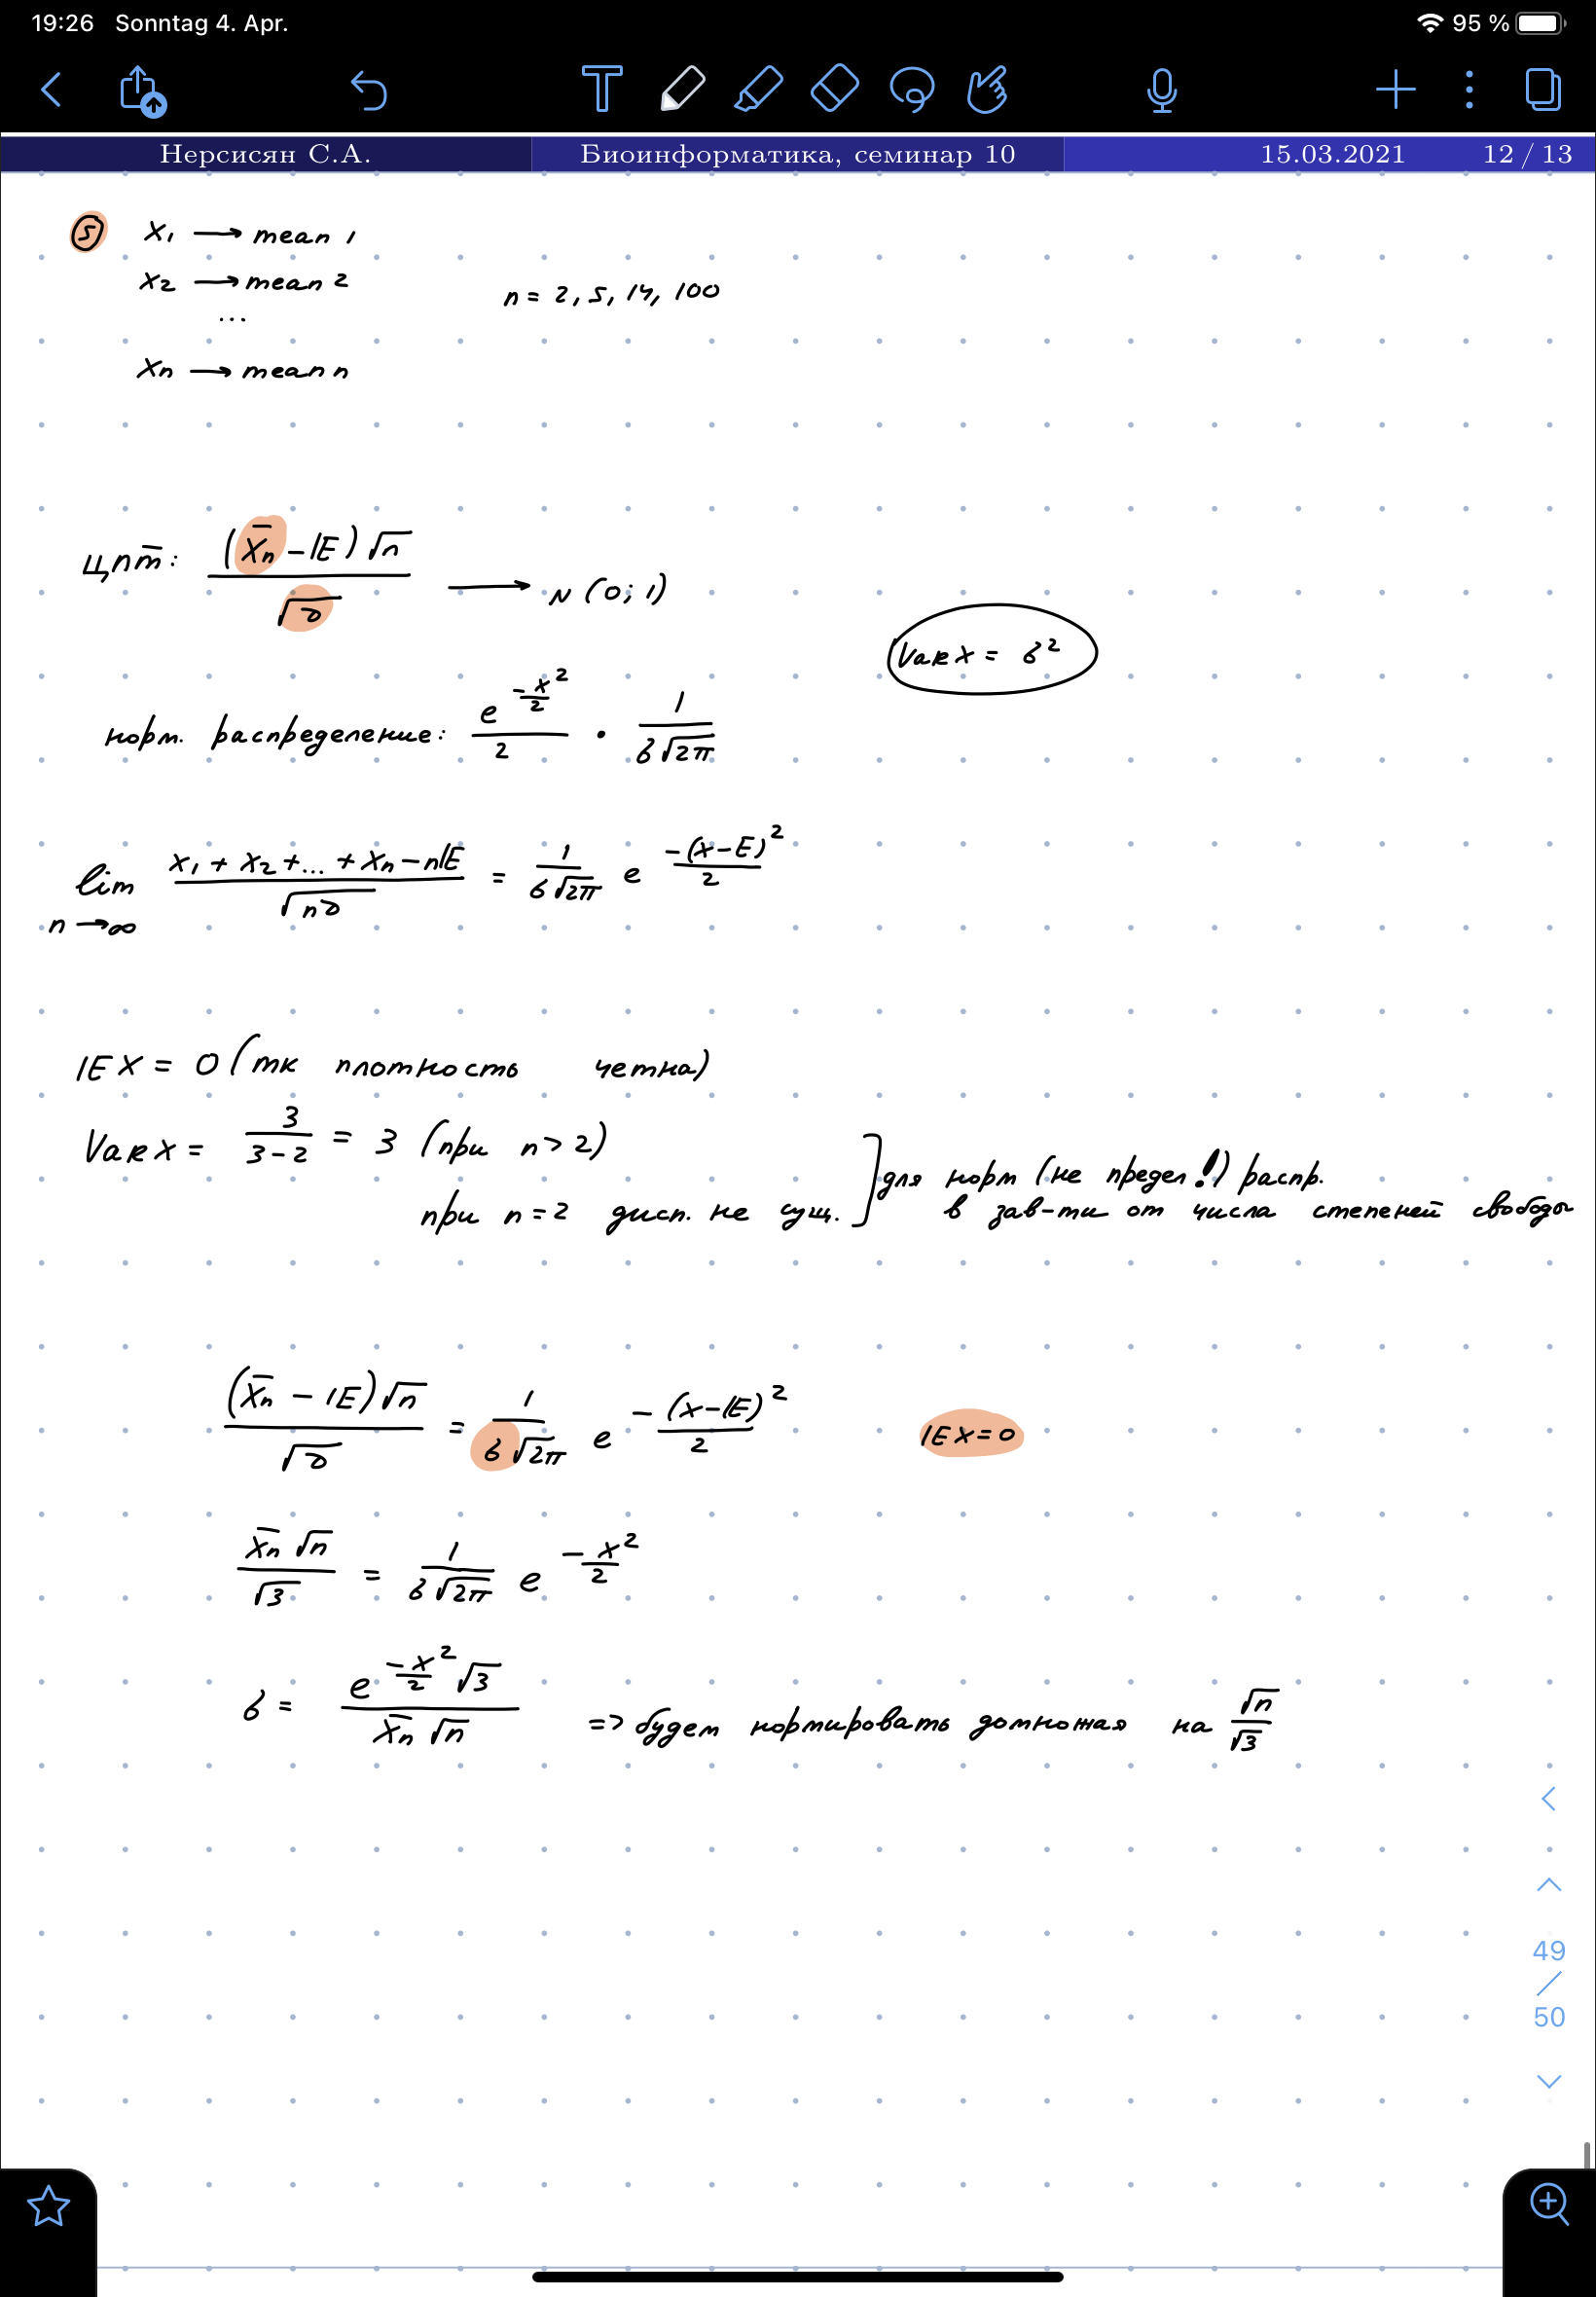 19:26 Sonntag 4. Apr. 95 %
Нерсисян С.А. Биоинформатика, семинар 10 15.03.2021 12 / 13
⑤ X₁ → mean 1
X₂ → mean 2
n = 2, 5, 14, 100
...
Xn → mean n
ЦПТ: (X̅n − IE) √n / √D → N (0; 1)
Var X = б²
норм. распределение: e^(−x²/2) / 2 · 1 / (б√2π)
lim n→∞ (x₁ + x₂ + ... + xn − nIE) / √nD = 1 / (б√2π) e^(−(x−E)²/2)
IE X = 0 (тк плотность четна)
Var X = 3 / (3−2) = 3 (при n > 2)
при n = 2 дисп. не сущ. ] для норм (не предел!) распр.
в зав-ти от числа степеней свободы
(X̅n − IE) √n / √D = 1 / (б√2π) e^(−(x−IE)²/2) IE X = 0
X̅n √n / √3 = 1 / (б√2π) e^(−x²/2)
б = e^(−x²/2) √3 / (X̅n √n) => будет нормировать домножая на √n / √3
49
/
50